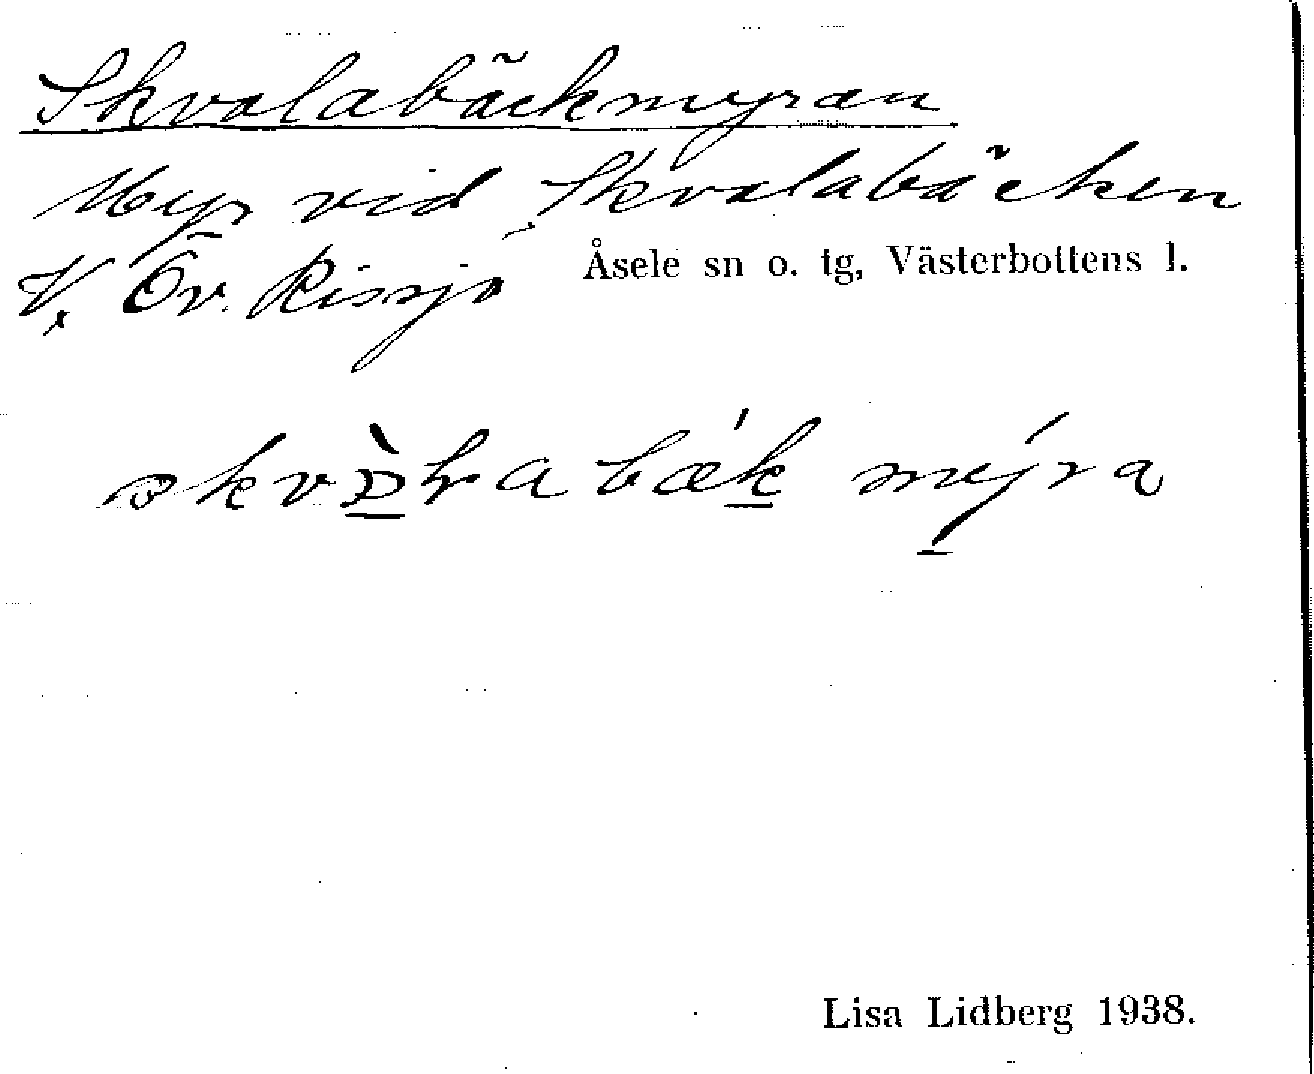 Skvalabäckmyran
Myr vid Skvalabäcken
V. Öv. Rissjö Åsele sn o. tg, Västerbottens l.
Lisa Lidberg 1938.